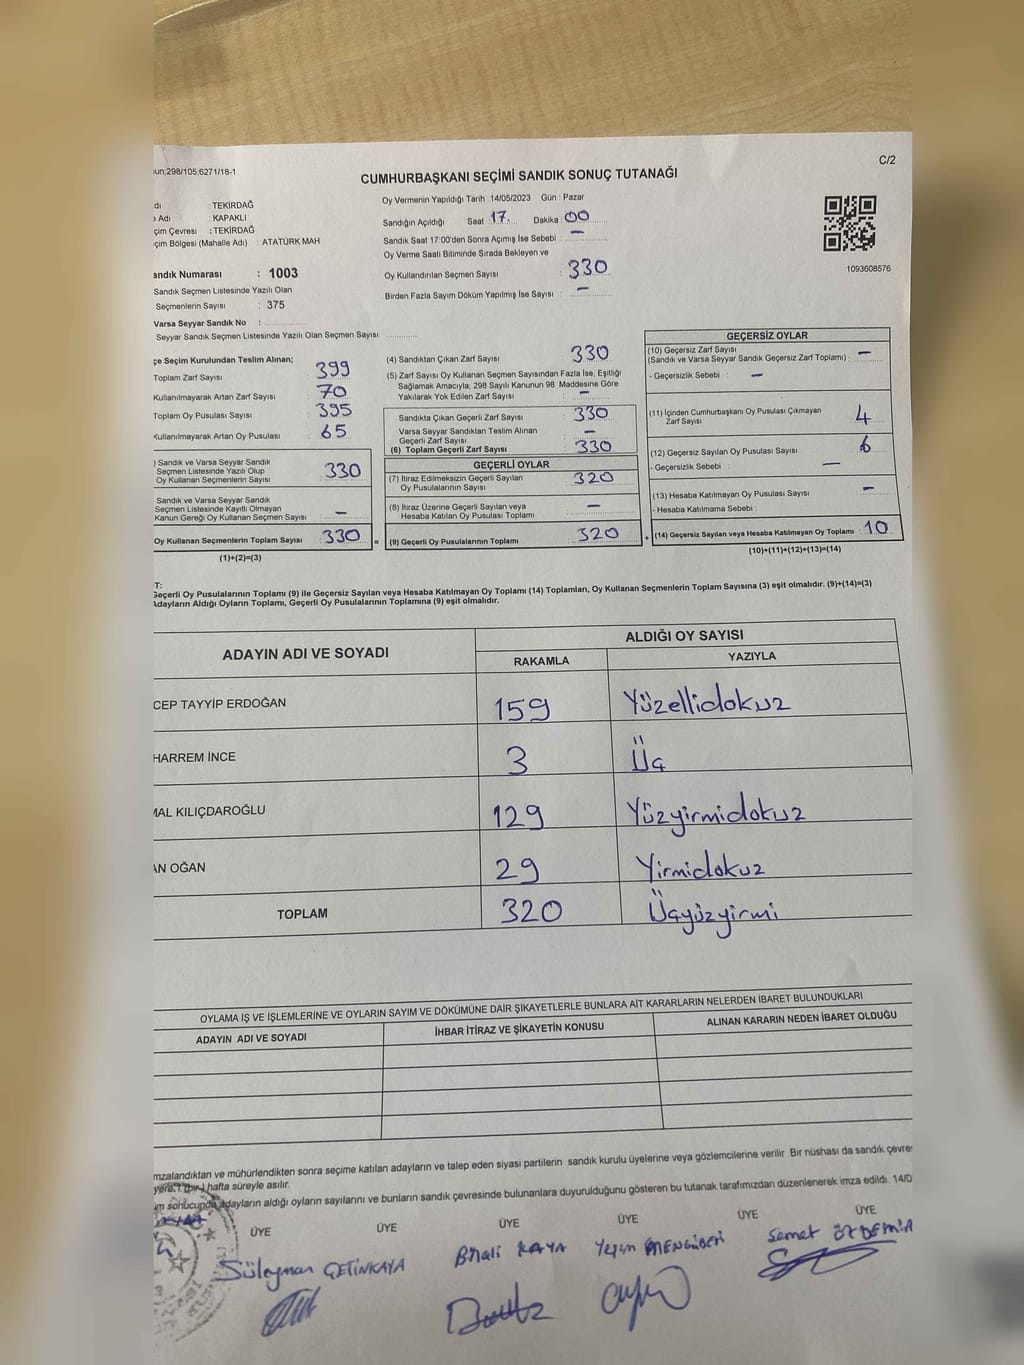 un;298/105,6271/18-1
C/2
CUMHURBAŞKANI SEÇİMİ SANDIK SONUÇ TUTANAĞI
dı : TEKİRDAĞ
Adı : KAPAKLI
çim Çevresi : TEKİRDAĞ
çim Bölgesi (Mahalle Adı) : ATATÜRK MAH
andık Numarası : 1003
Sandık Seçmen Listesinde Yazılı Olan
Seçmenlerin Sayısı : 375
Varsa Seyyar Sandık No :
Seyyar Sandık Seçmen Listesinde Yazılı Olan Seçmen Sayısı
Oy Vermenin Yapıldığı Tarih :14/05/2023 Gün : Pazar
Sandığın Açıldığı Saat 17 Dakika 00
Sandık Saat 17:00'den Sonra Açımış İse Sebebi : —
Oy Verme Saati Bitiminde Sırada Bekleyen ve
Oy Kullandırılan Seçmen Sayısı : 330
Birden Fazla Sayım Döküm Yapılmış İse Sayısı : —
1093608576
çe Seçim Kurulundan Teslim Alınan;
Toplam Zarf Sayısı 399
Kullanılmayarak Artan Zarf Sayısı 70
Toplam Oy Pusulası Sayısı 395
Kullanılmayarak Artan Oy Pusulası 65
) Sandık ve Varsa Seyyar Sandık
Seçmen Listesinde Yazılı Olup
Oy Kullanan Seçmenlerin Sayısı 330
Sandık ve Varsa Seyyar Sandık
Seçmen Listesinde Kayıtlı Olmayan
Kanun Gereği Oy Kullanan Seçmen Sayısı —
Oy Kullanan Seçmenlerin Toplam Sayısı 330
(1)+(2)=(3)
(4) Sandıktan Çıkan Zarf Sayısı 330
(5) Zarf Sayısı Oy Kullanan Seçmen Sayısından Fazla İse, Eşitliği
Sağlamak Amacıyla, 298 Sayılı Kanunun 98. Maddesine Göre
Yakılarak Yok Edilen Zarf Sayısı : —
Sandıkta Çıkan Geçerli Zarf Sayısı 330
Varsa Seyyar Sandıktan Teslim Alınan
Geçerli Zarf Sayısı —
(6) Toplam Geçerli Zarf Sayısı 330
GEÇERLİ OYLAR
(7) İtiraz Edilmeksizin Geçerli Sayılan
Oy Pusulalarının Sayısı 320
(8) İtiraz Üzerine Geçerli Sayılan veya
Hesaba Katılan Oy Pusulası Toplamı —
= (9) Geçerli Oy Pusulalarının Toplamı 320
GEÇERSİZ OYLAR
(10) Geçersiz Zarf Sayısı
(Sandık ve Varsa Seyyar Sandık Geçersiz Zarf Toplamı) : —
- Geçersizlik Sebebi : —
(11) İçinden Cumhurbaşkanı Oy Pusulası Çıkmayan
Zarf Sayısı 4
(12) Geçersiz Sayılan Oy Pusulası Sayısı 6
- Geçersizlik Sebebi : —
(13) Hesaba Katılmayan Oy Pusulası Sayısı —
- Hesaba Katılmama Sebebi
+ (14) Geçersiz Sayılan veya Hesaba Katılmayan Oy Toplamı 10
(10)+(11)+(12)+(13)=(14)
T:
Geçerli Oy Pusulalarının Toplamı (9) ile Geçersiz Sayılan veya Hesaba Katılmayan Oy Toplamı (14) Toplamları, Oy Kullanan Seçmenlerin Toplam Sayısına (3) eşit olmalıdır. (9)+(14)=(3)
Adayların Aldığı Oyların Toplamı, Geçerli Oy Pusulalarının Toplamına (9) eşit olmalıdır.
ADAYIN ADI VE SOYADI
ALDIĞI OY SAYISI
RAKAMLA YAZIYLA
CEP TAYYİP ERDOĞAN 159 Yüzellidokuz
HARREM İNCE 3 Üç
MAL KILIÇDAROĞLU 129 Yüzyirmidokuz
AN OĞAN 29 Yirmidokuz
TOPLAM 320 Üçyüzyirmi
OYLAMA İŞ VE İŞLEMLERİNE VE OYLARIN SAYIM VE DÖKÜMÜNE DAİR ŞİKAYETLERLE BUNLARA AİT KARARLARIN NELERDEN İBARET BULUNDUKLARI
ADAYIN ADI VE SOYADI İHBAR İTİRAZ VE ŞİKAYETİN KONUSU ALINAN KARARIN NEDEN İBARET OLDUĞU
mzalandıktan ve mühürlendikten sonra seçime katılan adayların ve talep eden siyasi partilerin sandık kurulu üyelerine veya gözlemcilerine verilir. Bir nüshası da sandık çevre
yere 1 (bir) hafta süreyle asılır.
ım sonucunda adayların aldığı oyların sayılarını ve bunların sandık çevresinde bulunanlara duyurulduğunu gösteren bu tutanak tarafımızdan düzenlenerek imza edildi. 14/0
ÜYE ÜYE ÜYE ÜYE ÜYE ÜYE
Süleyman ÇETİNKAYA Binali KAYA Yeşim MENGİBERİ Samet ÖZDEMİR